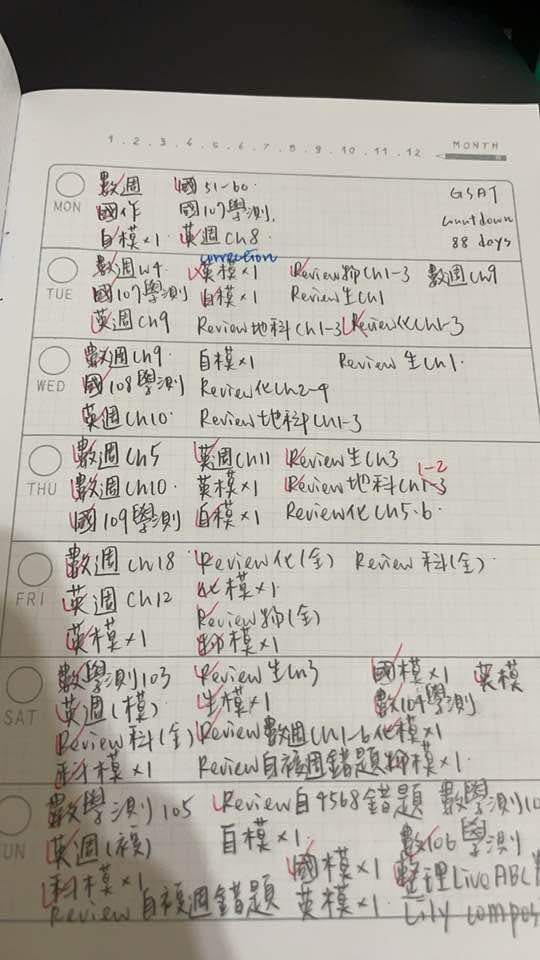 1 . 2 . 3 . 4 . 5 . 6 . 7 . 8 . 9 . 10 . 11 . 12 MONTH
MON
數週 國51-60.
國作 國107學測.
自模×1 英週Ch8
GSAT
countdown
88 days
TUE
correction
數週w4 英模×1 Review物Ch1-3 數週Ch9
國107學測 自模×1 Review生Ch1
英週Ch9 Review地科Ch1-3 Review化Ch1-3
WED
數週Ch9. 自模×1 Review生Ch1.
國108學測 Review化Ch2-4
英週Ch10. Review地科Ch1-3
THU
數週Ch5 英週Ch11 Review生Ch3
1-2
數週Ch10. 英模×1 Review地科Ch1-3
國109學測 自模×1 Review化Ch5.6
FRI
數週Ch18 Review化(全) Review科(全).
英週Ch12 化模×1
Review物(全)
英模×1 物模×1
SAT
數學測103 Review生Ch3 國模×1 英模
英週(模) 生模×1 數104學測
Review科(全) Review數週Ch1-6 化模×1
科模×1 Review自複週錯題 物模×1.
SUN
數學測105 Review自4568錯題 數學測10
英週(複) 自模×1. 數106學測
科模×1 國模×1 整理LiveABC
Review自複週錯題 英模×1. Lily compos